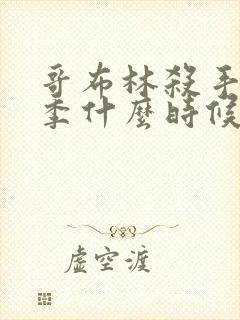 哥布林殺手
季什麼時候
虛空渡